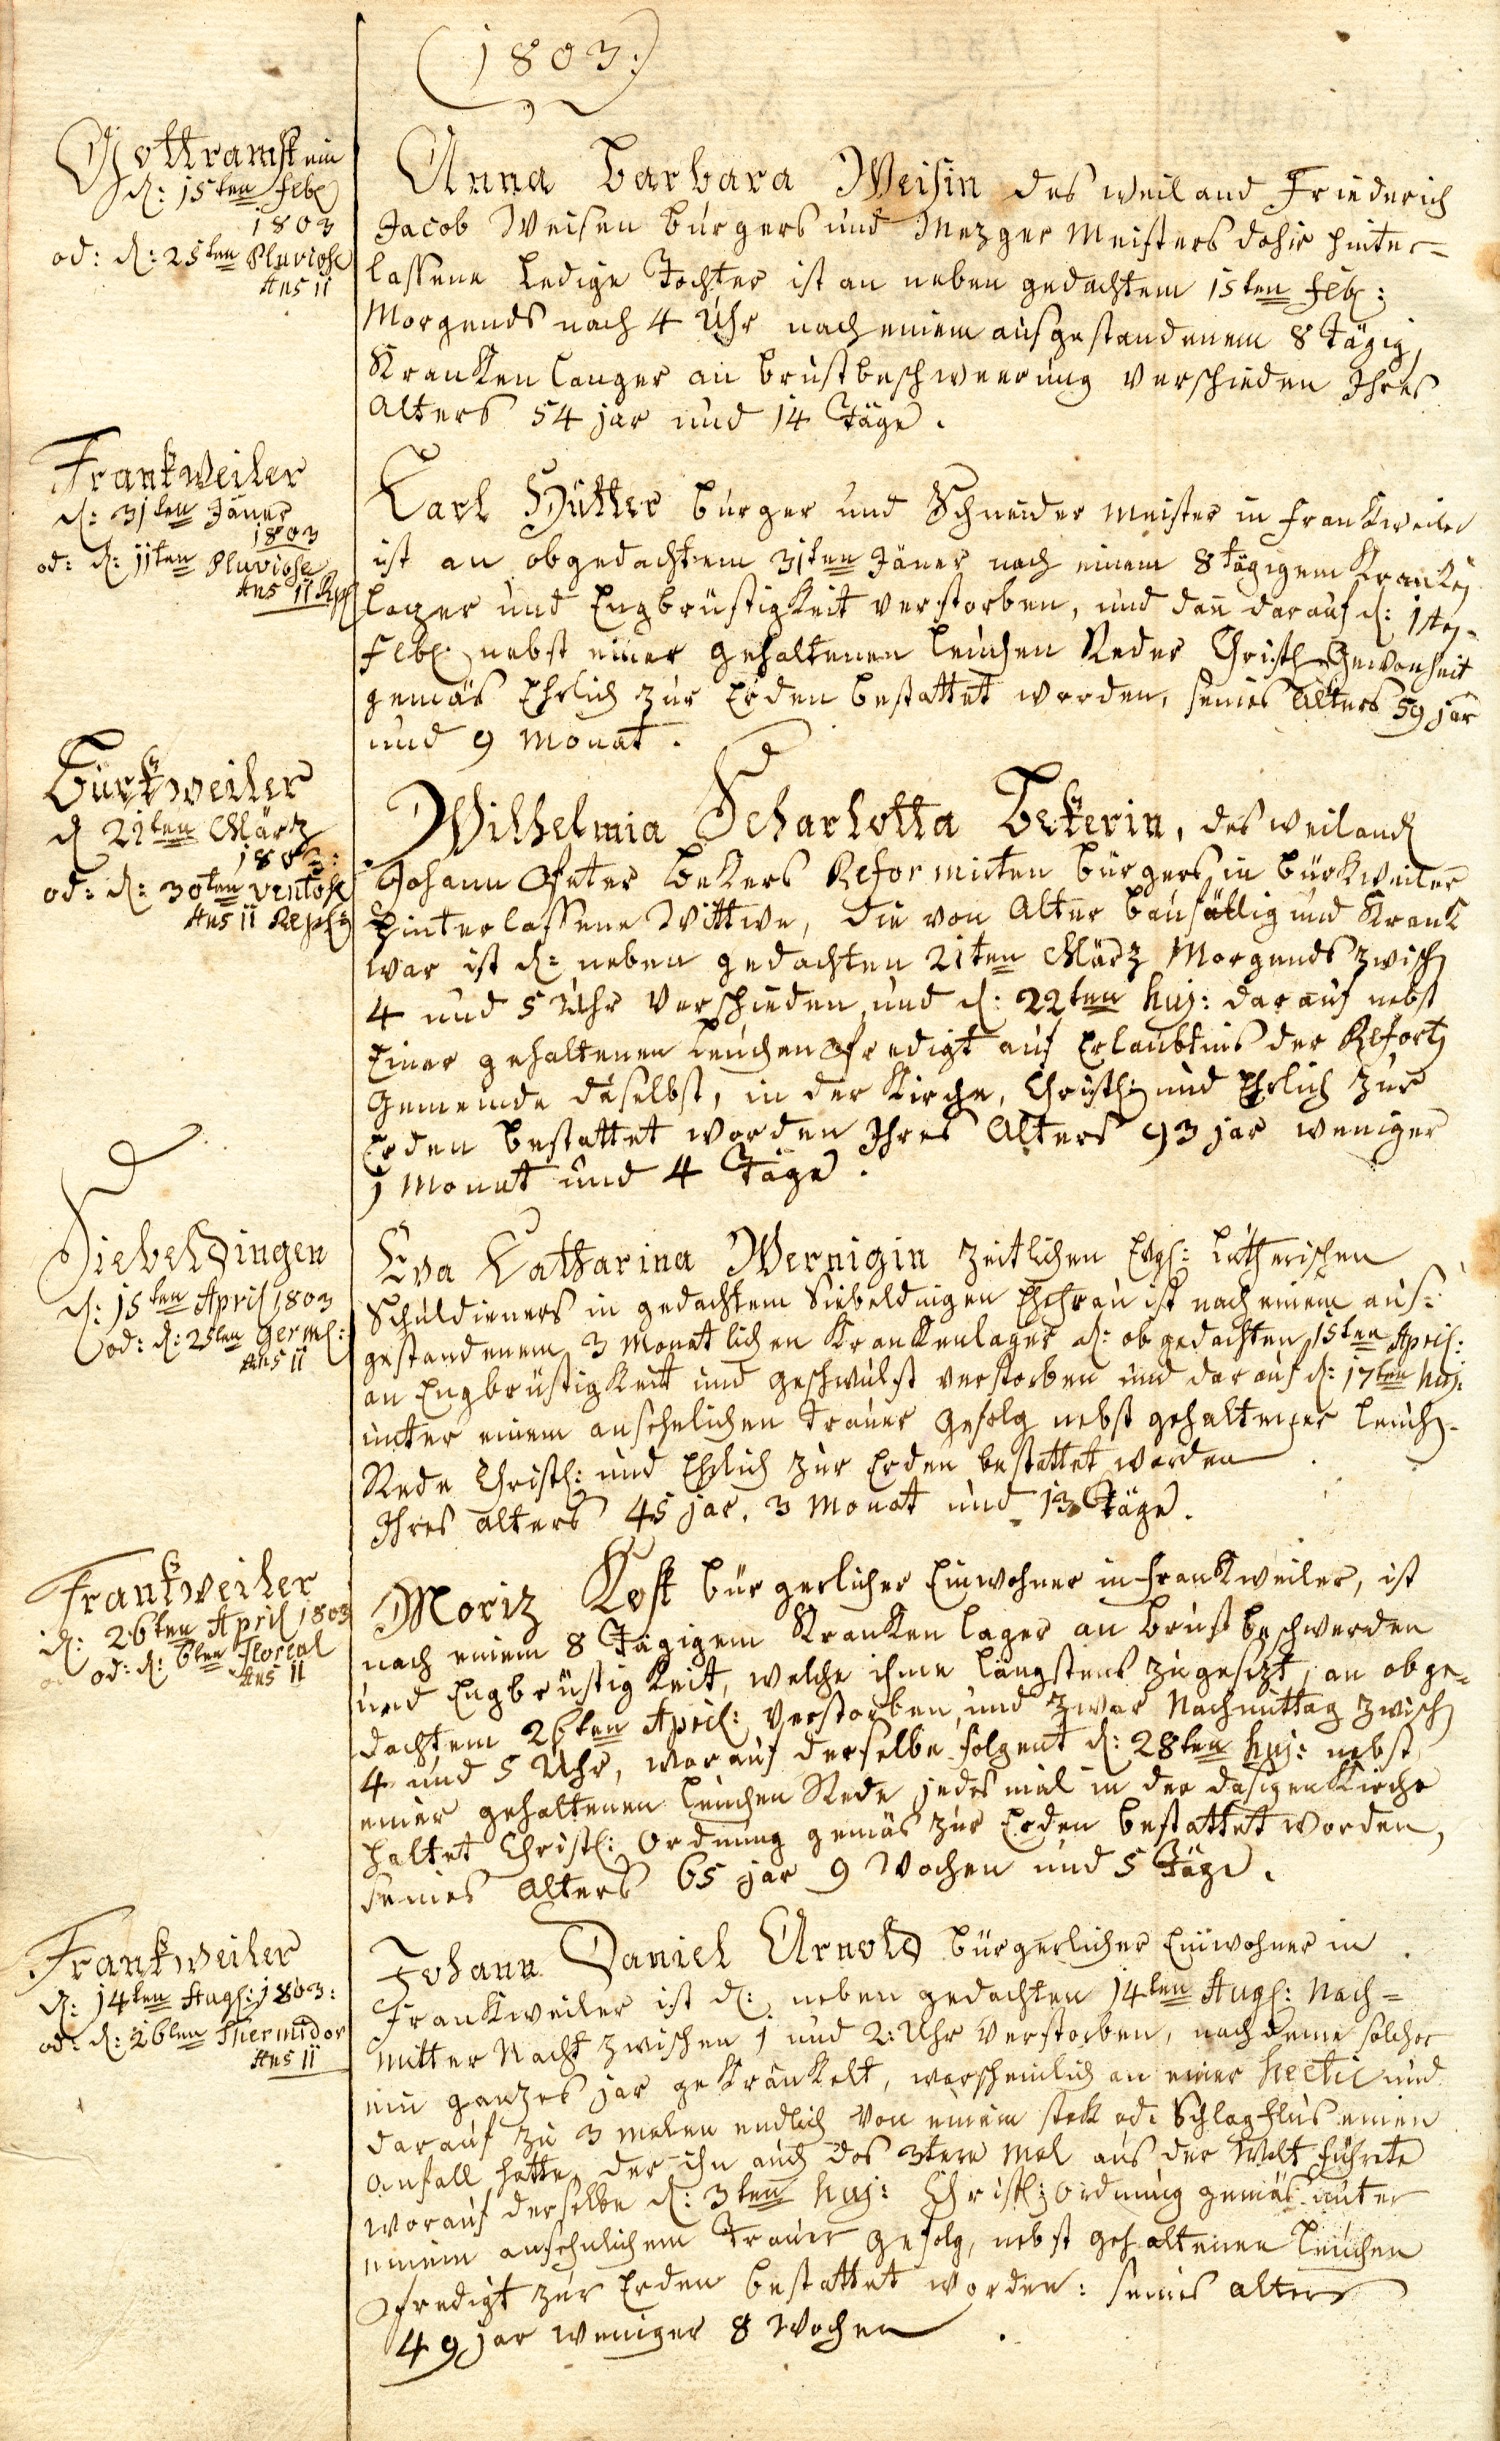 (1803:)
Gottramstein
d: 15ten Feb
1803
od: d: 25ten Pluviose
Ans 11
Anna Barbara Weisin des weiland Friederich
Jacob Weisen Burgers und Mezger Meisters dahir hinter-
lassene Ledige Tochter ist an neben gedachtem 15ten Feb:
Morgends nach 4 Uhr nach einem ausgestandenem 8 Tägig
Kranken langer an Brustbeschweerung verschieden Ihres
Alters 54 jar und 14 Täge.
Frankweiler
d: 31ten Jäner
1803
od: d: 11ten Pluviose
Ans 11 Rep
Carl Hütter Burger und Schneider meister in Frankweiler
ist an obgedachtem 31ten Jäner nach einem 8 Tägigem Kranken
lager und Engbrüstigkeit verstorben, und dan darauf d: 1ten
Feb: nebst einer gehaltenen Leichen Reder Christl Gewonheit
gemäs Ehrlich zur Erden bestattet worden, seines Alters 59 jar
und 9 Monat.
Bürkweiler
d 21ten März
1803:
od: d: 30ten ventose
Ans 11 Rep
Wilhelmia Scharlotta Bekerin, des weiland
Johann Peter Bekers Reformirten Bürgers in Bürkweiler
hinterlassene Wittwe, die von Alter baufällig und Krank
war ist d: neben gedachten 21ten März Morgends zwisch
4 und 5 Uhr verschieden, und d: 22ten huj: darauf nebst
Einer gehaltenen Leichen Predigt auf Erlaubtnis der Refort
Gemeinde daselbst, in der Kirche, Christl: und Ehrlich zur
Erden bestattet worden Ihres Alters 93 jar weniger
1 Monat und 4 Täge.
Siebeldingen
d: 15ten April 1803
od: d: 25ten Germl:
Ans 11
Eva Catharina Wernigin zeitlichen Evgl: Lutherischen
Schuldieners in gedachtem Siebeldingen Ehefrau ist nach einem aus-
gestandenem 3 Monatlichen Krankenlager d: obgedachten 15ten April:
an Engbrüstigkeit und geschwulst verstorben und darauf d: 17ten huj:
unter einem ansehelichen Trauer gefolg nebst gehaltener Leich-
Rede Christl: und Ehrlich zur Erden bestattet worden
Ihres alters 45 jar, 3 Monat und 13 Täge.
Frankweiler
d: 26ten April 1803
od: d: 6ten Floreal
Ans 11
Moriz Kost bürgerlicher Einwohner in Frankweiler, ist
nach einem 8 Tägigem Kranken lager an Brust beschwerden
und Engbrüstigkeit, welche ihme längstens zugesezt, an obge-
dachtem 26ten April: verstorben, und zwar Nachmittag zwisch
4 und 5 Uhr, worauf derselbe folgent d: 28ten huj: nebst
einer gehaltenen Leichen Rede jedesmal in der dasigen Kirche
haltet Christl: Ordnung gemäs zur Erden bestattet worden,
seines Alters 65 jar 9 Wochen und 5 Täge.
Frankweiler
d: 14ten Aug: 1803:
od: d: 26ten Thermidor
Ans 11
Johann Daniel Arnold bürgerlicher Einwohner in
Frankweiler ist d: neben gedachten 14ten Aug: Nach-
mitter Nacht zwischen 1 und 2: Uhr verstorben, nachdeme solcher
ein ganzes jar gekränkelt, warscheinlich an einer hectic und
darauf zu 3 malen endlich von einem stek od: Schlagflus einen
Anfall hatte, der ihn auch das 3tere mal aus der Welt führete
worauf derselbe d: 3ten huj: Christl: Ordnung gemäs unter
einem ansehnlichem Trauer gefolg, nebst gehaltenen Leichen
Predigt zur Erden bestattet worden: seines alters
49 jar weniger 8 Wochen.